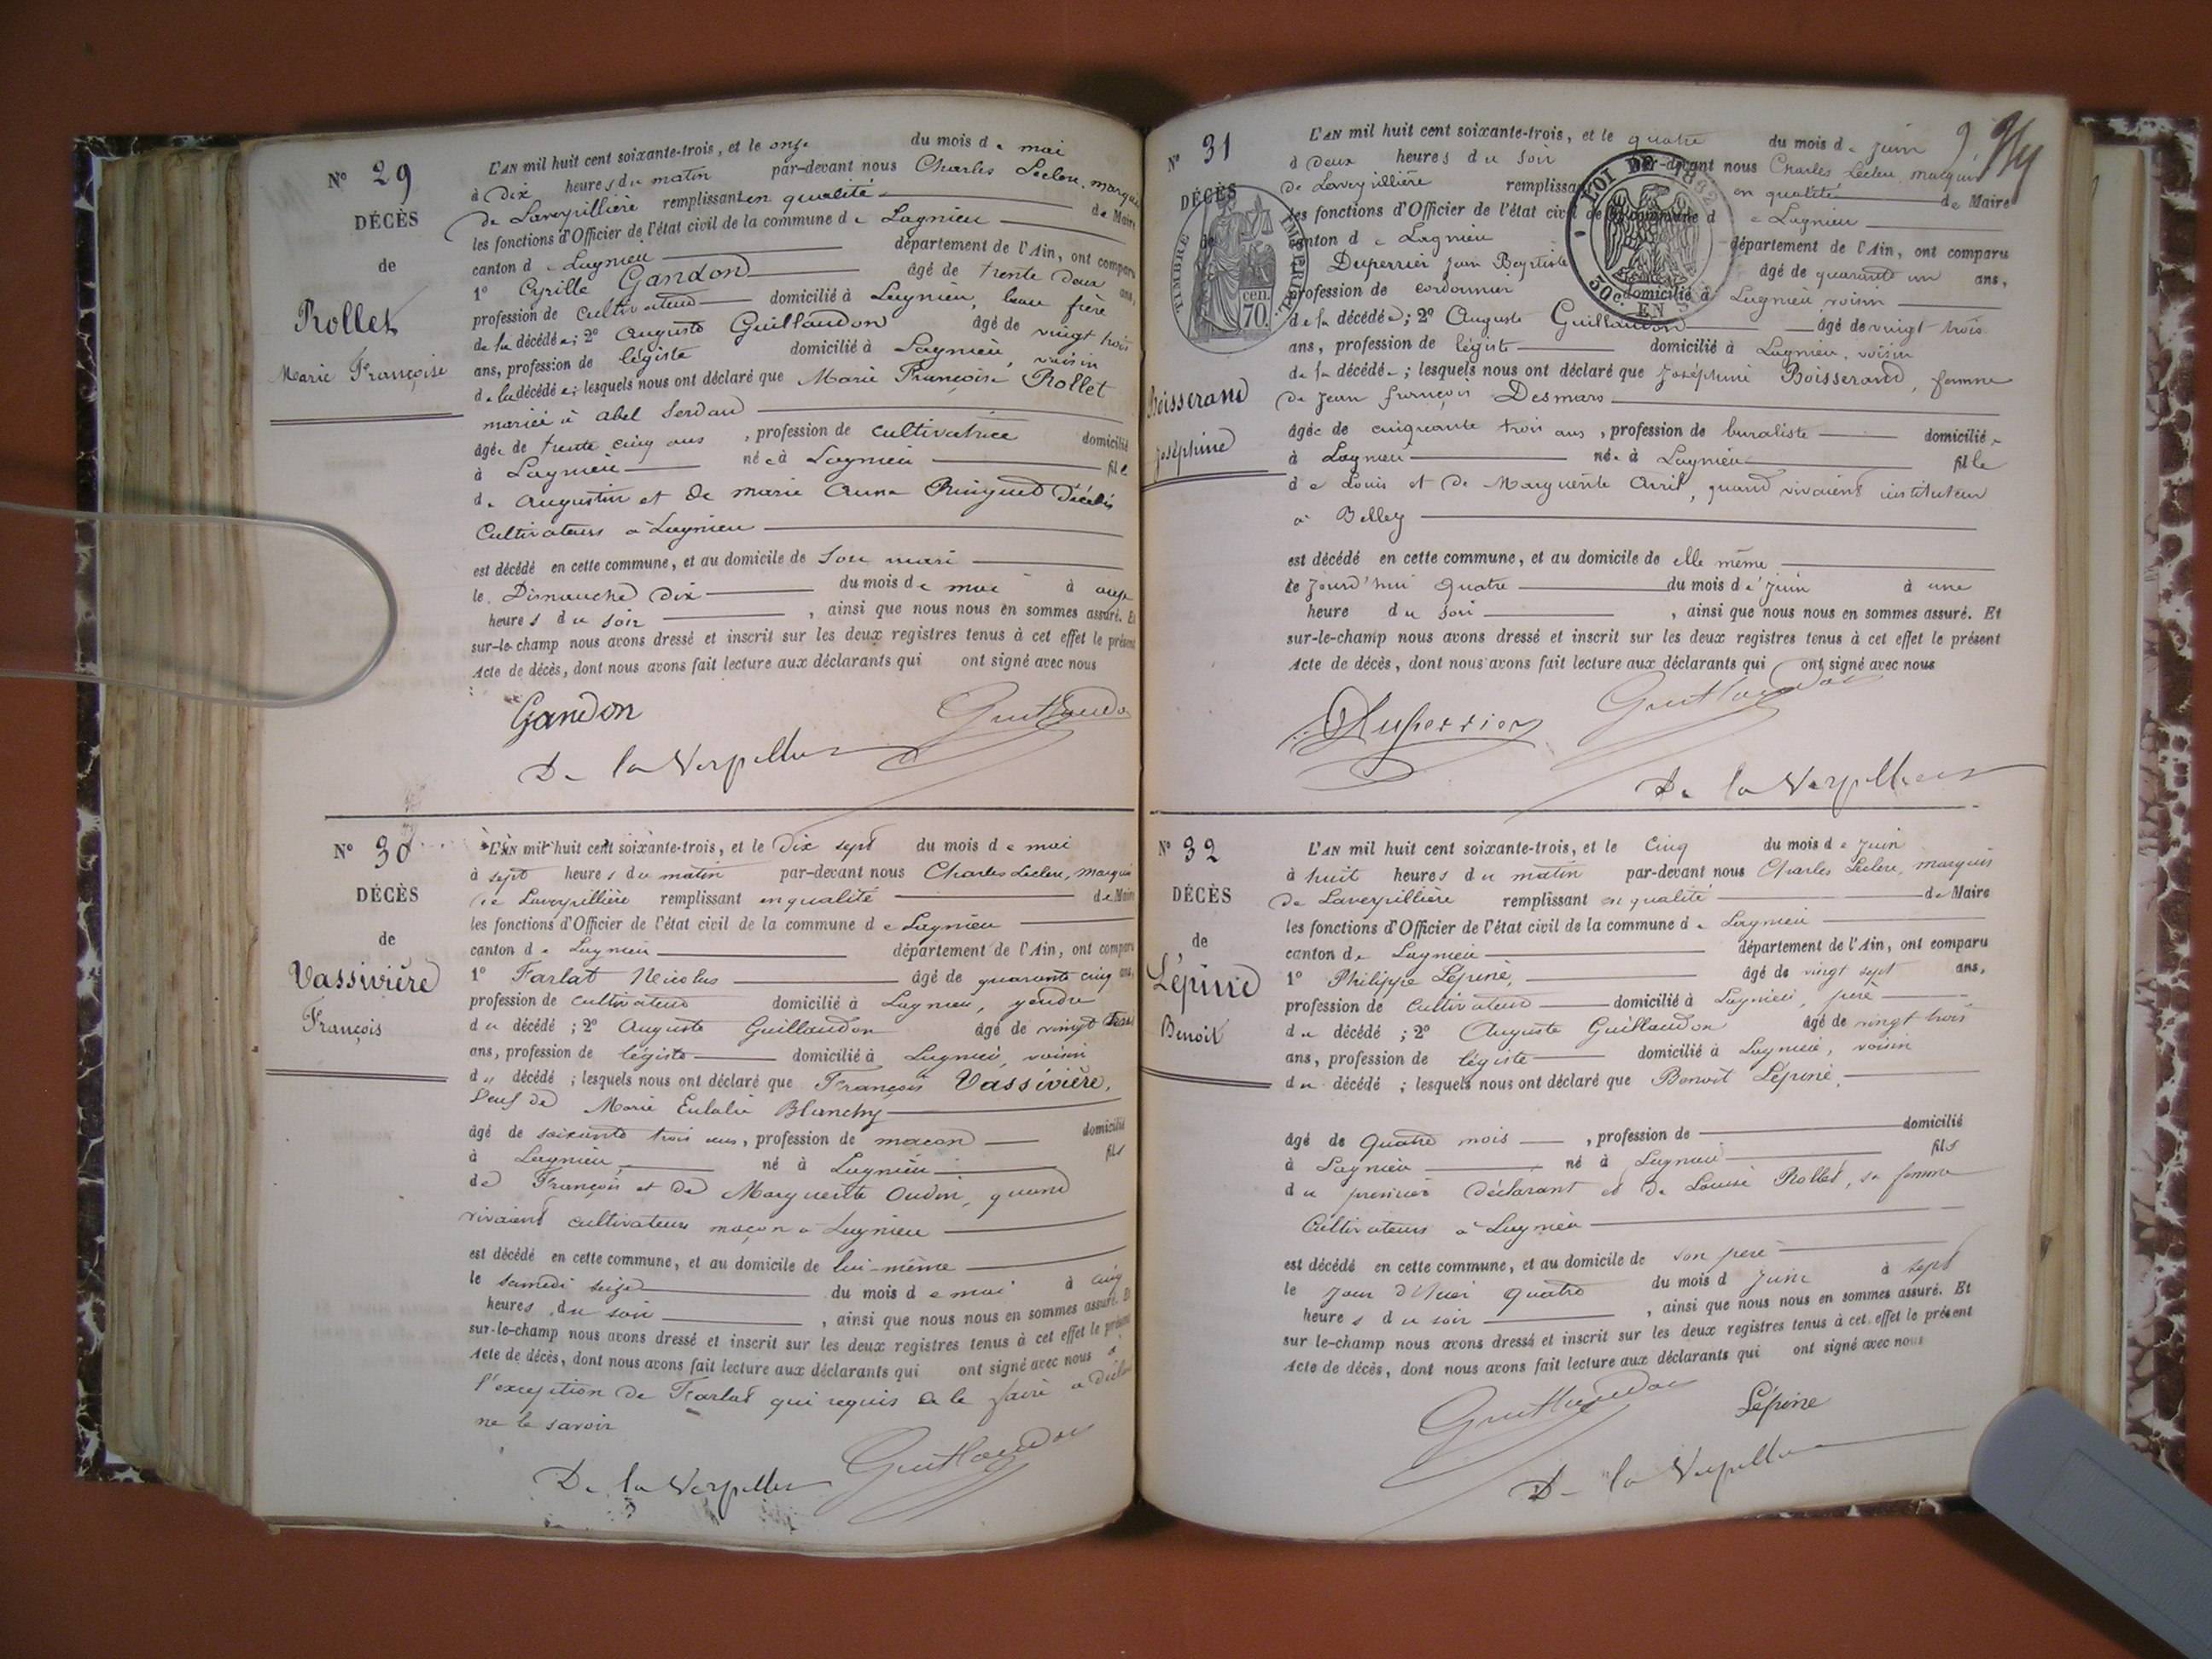 N° 29
DÉCÈS
de
Rollet
Marie Françoise
L'AN mil huit cent soixante-trois, et le onze du mois de mai
à dix heures du matin par-devant nous Charles Leclerc, marquis
de Laverpillière remplissant en qualité de Maire
les fonctions d'Officier de l'état civil de la commune de Lagnieu
canton de Lagnieu département de l'Ain, ont comparu
1° Cyrille Gandon âgé de trente deux ans,
profession de cultivateur domicilié à Lagnieu, beau frère
de la décédée; 2° Auguste Guillaudon âgé de vingt trois
ans, profession de légiste domicilié à Lagnieu, voisin
de la décédée; lesquels nous ont déclaré que Marie Françoise Rollet
mariée à abel
âgée de trente cinq ans, profession de cultivatrice domicilié
à Lagnieu née à Lagnieu fille
de Augustin et de marie Anne décédés
Cultivateurs à Lagnieu
est décédé en cette commune, et au domicile de son mari
le Dimanche dix du mois de mai à onze
heures du soir, ainsi que nous nous en sommes assuré. Et
sur-le-champ nous avons dressé et inscrit sur les deux registres tenus à cet effet le présent
Acte de décès, dont nous avons fait lecture aux déclarants qui ont signé avec nous
Gandon Guillaudon
De la Verpillière
N° 30
DÉCÈS
de
Vassivière
François
L'AN mil huit cent soixante-trois, et le dix sept du mois de mai
à sept heures du matin par-devant nous Charles Leclerc, marquis
de Laverpillière remplissant en qualité de Maire
les fonctions d'Officier de l'état civil de la commune de Lagnieu
canton de Lagnieu département de l'Ain, ont comparu
1° Farlat Nicolas âgé de quarante cinq ans,
profession de cultivateur domicilié à Lagnieu, gendre
du décédé; 2° Auguste Guillaudon âgé de vingt trois
ans, profession de légiste domicilié à Lagnieu, voisin
du décédé; lesquels nous ont déclaré que François Vassivière,
veuf de Marie Eulalie Blanchy
âgé de soixante trois ans, profession de maçon domicilié
à Lagnieu né à Lagnieu fils
de François et de Marguerite Oudin, quand
vivaient cultivateurs maçon à Lagnieu
est décédé en cette commune, et au domicile de lui-même
le samedi seize du mois de mai à cinq
heures du soir, ainsi que nous nous en sommes assuré. Et
sur-le-champ nous avons dressé et inscrit sur les deux registres tenus à cet effet le présent
Acte de décès, dont nous avons fait lecture aux déclarants qui ont signé avec nous à
l'exception de Farlat qui requis de le faire a déclaré
ne le savoir
De la Verpillière Guillaudon
N° 31
DÉCÈS
TIMBRE IMPÉRIAL
70 cen.
Boisserand
Joséphine
L'AN mil huit cent soixante-trois, et le quatre du mois de juin
à deux heures du soir par-devant nous Charles Leclerc, marquis
de Laverpillière remplissant en qualité de Maire
les fonctions d'Officier de l'état civil de la commune de Lagnieu
LOI DE 1862
50c EN SUS
canton de Lagnieu département de l'Ain, ont comparu
Duperrier Jean Baptiste âgé de quarante un ans,
profession de cordonnier domicilié à Lagnieu voisin
de la décédée; 2° Auguste Guillaudon âgé de vingt trois
ans, profession de légiste domicilié à Lagnieu, voisin
de la décédée; lesquels nous ont déclaré que Joséphine Boisserand, femme
de Jean françois Desmars
âgée de cinquante trois ans, profession de buraliste domiciliée
à Lagnieu née à Lagnieu fille
de Louis et de Marguerite Avril, quand vivaient instituteur
à Belley
est décédé en cette commune, et au domicile de elle même
le jourd'hui quatre du mois de juin à une
heure du soir, ainsi que nous nous en sommes assuré. Et
sur-le-champ nous avons dressé et inscrit sur les deux registres tenus à cet effet le présent
Acte de décès, dont nous avons fait lecture aux déclarants qui ont signé avec nous
Duperrier Guillaudon
De la Verpillière
N° 32
DÉCÈS
de
Lépine
Benoit
L'AN mil huit cent soixante-trois, et le cinq du mois de juin
à huit heures du matin par-devant nous Charles Leclerc, marquis
de Laverpillière remplissant en qualité de Maire
les fonctions d'Officier de l'état civil de la commune de Lagnieu
canton de Lagnieu département de l'Ain, ont comparu
1° Philippe Lépine, âgé de vingt sept ans,
profession de cultivateur domicilié à Lagnieu, père
du décédé; 2° Auguste Guillaudon âgé de vingt trois
ans, profession de légiste domicilié à Lagnieu, voisin
du décédé; lesquels nous ont déclaré que Benoit Lépine,
âgé de quatre mois, profession de domicilié
à Lagnieu né à Lagnieu fils
du premier déclarant et de Louise Rollet, sa femme
Cultivateurs à Lagnieu
est décédé en cette commune, et au domicile de son père
le jour d'hier quatre du mois d juin à sept
heures du soir, ainsi que nous nous en sommes assuré. Et
sur le-champ nous avons dressé et inscrit sur les deux registres tenus à cet effet le présent
Acte de décès, dont nous avons fait lecture aux déclarants qui ont signé avec nous
Guillaudon Lépine
De la Verpillière